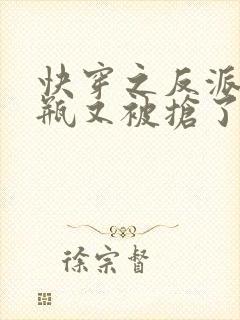 快穿之反派
瓶又被搶了
徐宗督